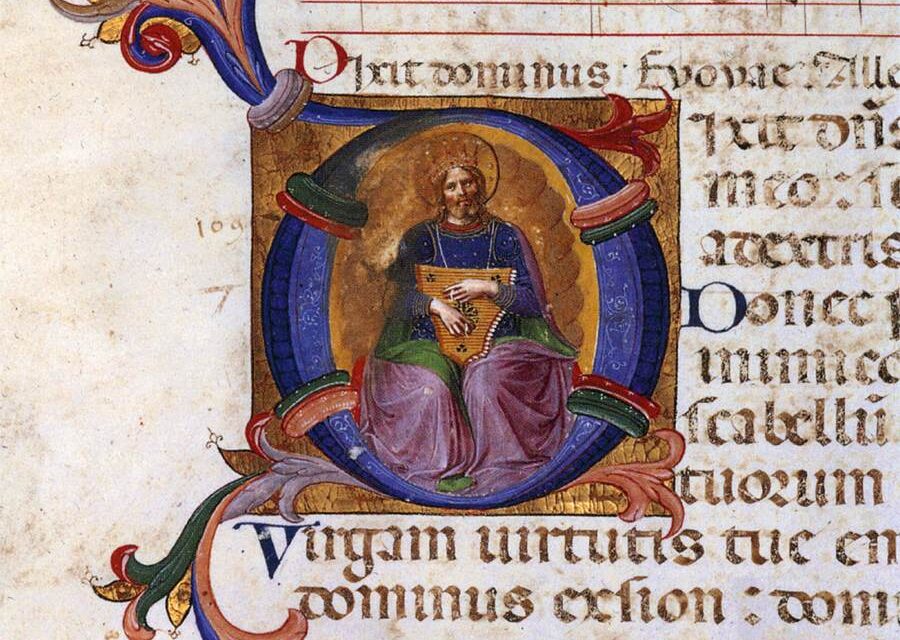 Dixit dominus : Evovae : Alle
Dixit dn̄s
meo : se
a dextris
Donec p
inimico
scabellū
tuorum
Virgam uirtutis tue em
dominus ex sion : domi
109